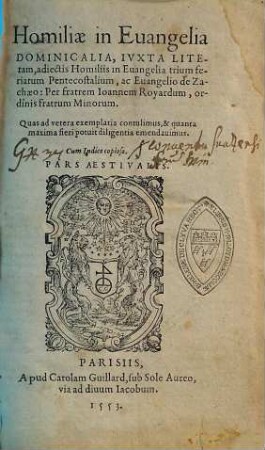 Homiliæ in Euangelia
DOMINICALIA, IVXTA LITE-
ram, adiectis Homiliis in Euangelia trium fe-
riarum Pentecostalium, ac Euangelio de Za-
chæo: Per fratrem Ioannem Royardum, or-
dinis fratrum Minorum.
Quas ad vetera exemplaria contulimus, & quanta
maxima fieri potuit diligentia emendauimus.
Cum Indice copioso.
PARS AESTIVALIS.
PARISIIS,
Apud Carolam Guillard, sub Sole Aureo,
via ad diuum Iacobum.
1553.